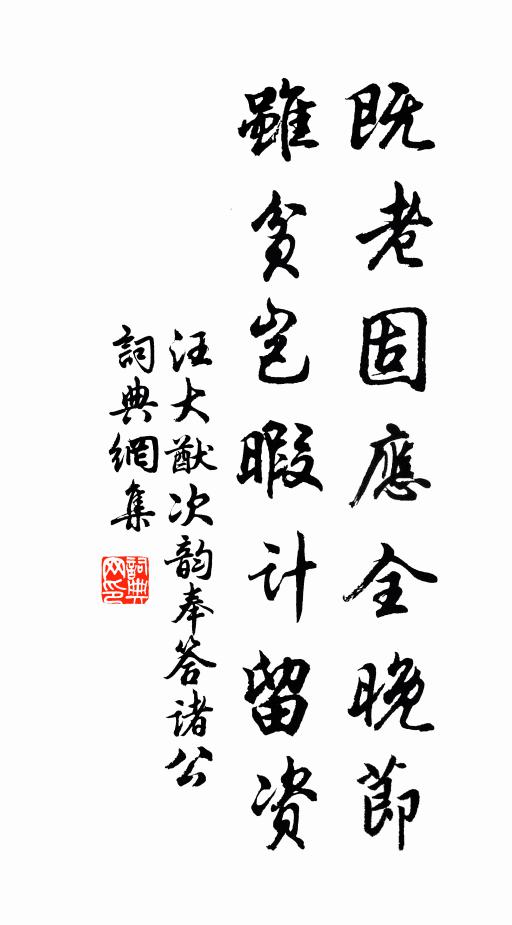 既老固應全晚節
雖貧豈暇計留资
汪大猷次韵奉答诸公
詞典網集
詞典
网印